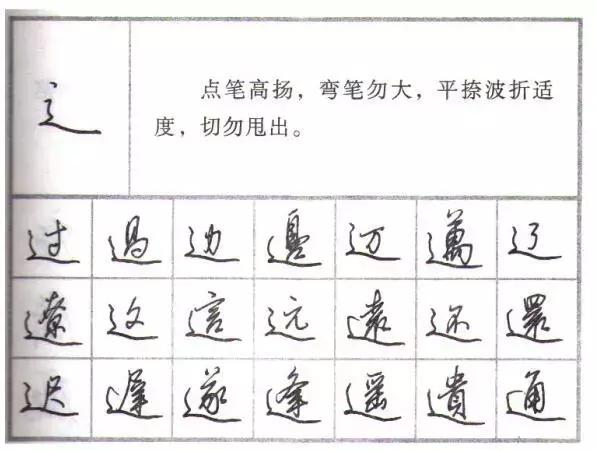 辶
点笔高扬，弯笔勿大，平捺波折适
度，切勿甩出。
过 過 边 邊 迈 邁 辽
遼 这 這 远 遠 还 還
迟 遲 遂 逢 遥 遺 通